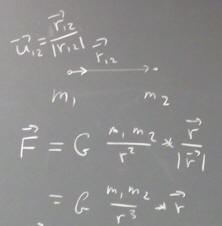 u⃗₁₂ = r⃗₁₂ / |r₁₂|
r⃗₁₂
m₁ m₂
F⃗ = G m₁ m₂ / r² * r⃗ / |r⃗|
= G m₁ m₂ / r³ * r⃗